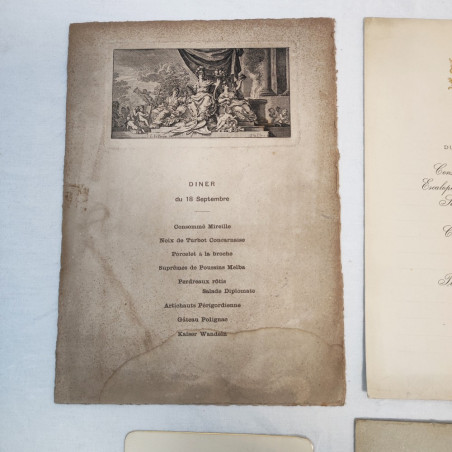 DINER
du 18 Septembre
Consommé Mireille
Noix de Turbot Concarnasse
Porcelet à la broche
Suprêmes de Poussins Melba
Perdreaux rôtis
Salade Diplomate
Artichauts Périgordienne
Gâteau Polignac
Kaiser Wandein
DI
Cons
Escalop